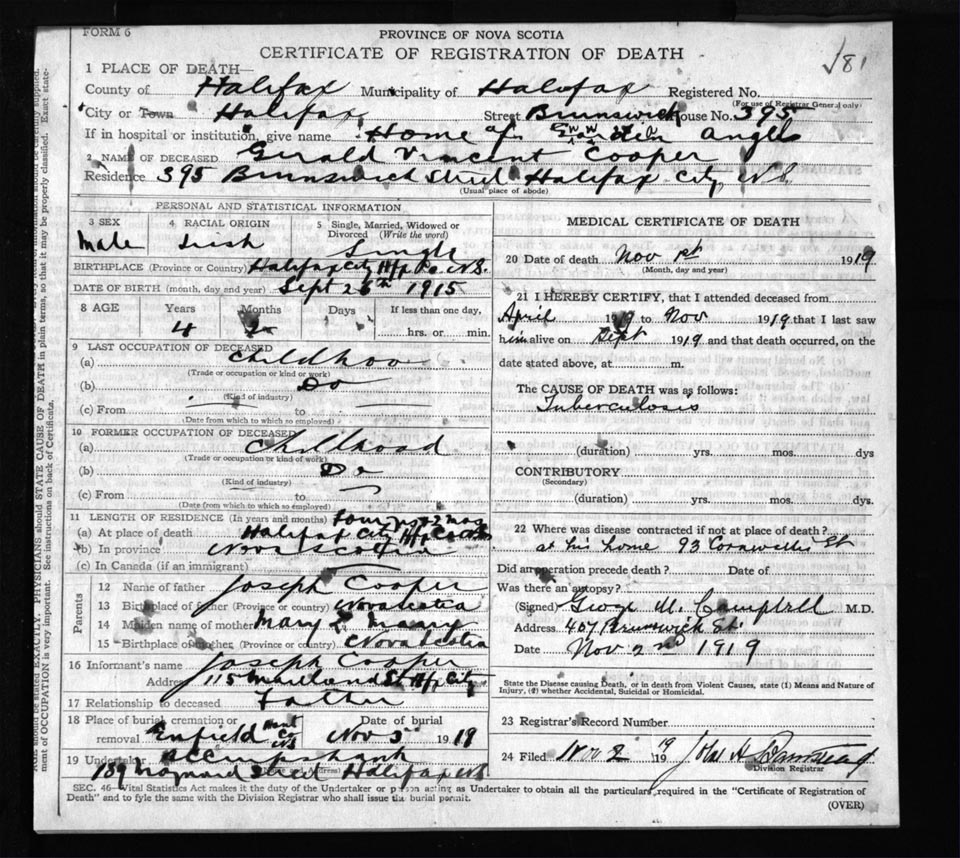 FORM 6
PROVINCE OF NOVA SCOTIA
CERTIFICATE OF REGISTRATION OF DEATH
√81
1 PLACE OF DEATH—
County of Halifax Municipality of Halifax Registered No.
(For use of Registrar General only)
City or Town Halifax Street Brunswick House No. 395
If in hospital or institution, give name Home of Guardian Angel
2 NAME OF DECEASED Gerald Vincent Cooper
Residence 395 Brunswick Street Halifax City N.S.
(Usual place of abode)
PERSONAL AND STATISTICAL INFORMATION
3 SEX Male
4 RACIAL ORIGIN Irish
5 Single, Married, Widowed or Divorced (Write the word) Single
BIRTHPLACE (Province or Country) Halifax City Hfx Co N.S.
DATE OF BIRTH (month, day and year) Sept 26th 1915
8 AGE Years 4 Months 2 Days If less than one day, hrs. or min.
9 LAST OCCUPATION OF DECEASED
(a) Childhoo
(Trade or occupation or kind of work)
(b) Do
(Kind of industry)
(c) From to
(Date from which to which so employed)
10 FORMER OCCUPATION OF DECEASED
(a) Childhood
(Trade or occupation or kind of work)
(b) Do
(Kind of industry)
(c) From to
(Date from which to which so employed)
11 LENGTH OF RESIDENCE (In years and months) four yrs 2 mos
(a) At place of death Halifax City Hfx Co
(b) In province Nova Scotia
(c) In Canada (if an immigrant)
Parents
12 Name of father Joseph Cooper
13 Birthplace of father (Province or country) Nova Scotia
14 Maiden name of mother Mary
15 Birthplace of mother (Province or country) Nova Scotia
16 Informant's name Joseph Cooper
Address 115 Maitland St Hfx City
17 Relationship to deceased Father
18 Place of burial, cremation or removal Enfield Hant Co NS Date of burial Nov 3rd 1919
19 Undertaker
189 Maynard Street Halifax NS
MEDICAL CERTIFICATE OF DEATH
20 Date of death Nov 1st 1919
(Month, day and year)
21 I HEREBY CERTIFY, that I attended deceased from
April 1919 to Nov 1919 that I last saw
him alive on Sept 1919 and that death occurred, on the
date stated above, at m.
The CAUSE OF DEATH was as follows:
Tuberculosis
(duration) yrs. mos. dys
CONTRIBUTORY
(Secondary)
(duration) yrs. mos. dys.
22 Where was disease contracted if not at place of death?
at his home 93 Cornwallis St
Did an operation precede death? Date of
Was there an autopsy?
(Signed) George M. Campbell M.D.
Address 407 Brunswick St
Date Nov 2nd 1919
State the Disease causing Death, or in death from Violent Causes, state (1) Means and Nature of Injury, (2) whether Accidental, Suicidal or Homicidal.
23 Registrar's Record Number
24 Filed Nov 2 1919 John H Barnstead
Division Registrar
SEC. 46—Vital Statistics Act makes it the duty of the Undertaker or person acting as Undertaker to obtain all the particulars required in the "Certificate of Registration of
Death" and to fyle the same with the Division Registrar who shall issue the burial permit.
(OVER)